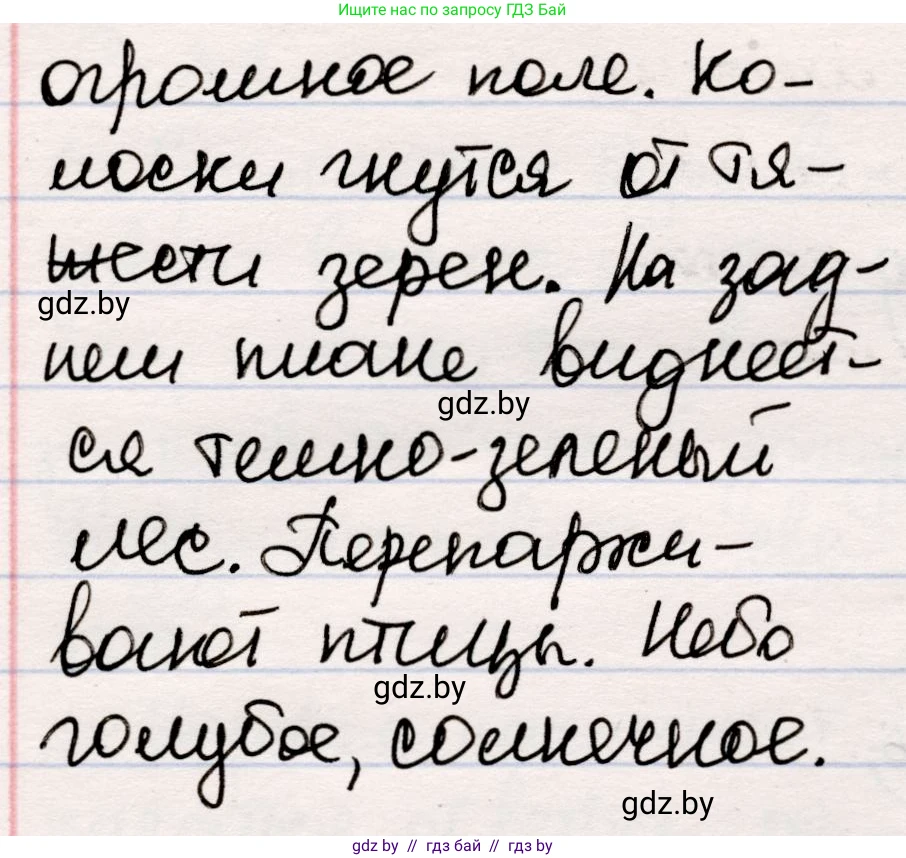 Ищите нас по запросу ГДЗ Бай
огромное поле. Ко-
лоски гнутся от тя-
жести зерен. На зад-
нем плане виднеет-
ся темно-зеленый
лес. Перепархи-
вают птицы. Небо
голубое, солнечное.
gdz.by
gdz.by
gdz.by
gdz.by
gdz.by // гдз бай // gdz by